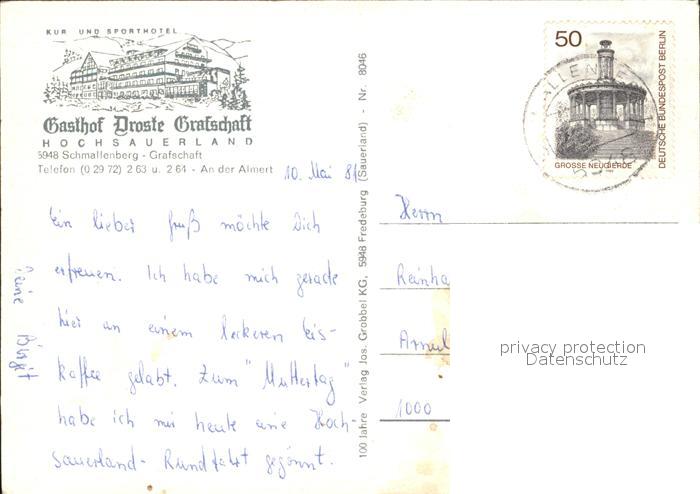 KUR UND SPORTHOTEL
Gasthof Droste Grafschaft
HOCHSAUERLAND
5948 Schmallenberg - Grafschaft
Telefon (0 29 72) 2 63 u. 2 64 - An der Almert
10. Mai 81
Ein lieber Gruß möchte Dich
erfreuen. Ich habe mich gerade
hier an einem leckeren Eis-
kaffee gelabt. Zum "Muttertag"
habe ich mir heute eine Hoch-
sauerland- Rundfahrt gegönnt.
Deine Birgit
100 Jahre Verlag Jos. Grobbel KG, 5948 Fredeburg (Sauerland) - Nr. 8046
50
DEUTSCHE BUNDESPOST BERLIN
GROSSE NEUGIERDE
Herrn
Reinha
1000
privacy protection
Datenschutz